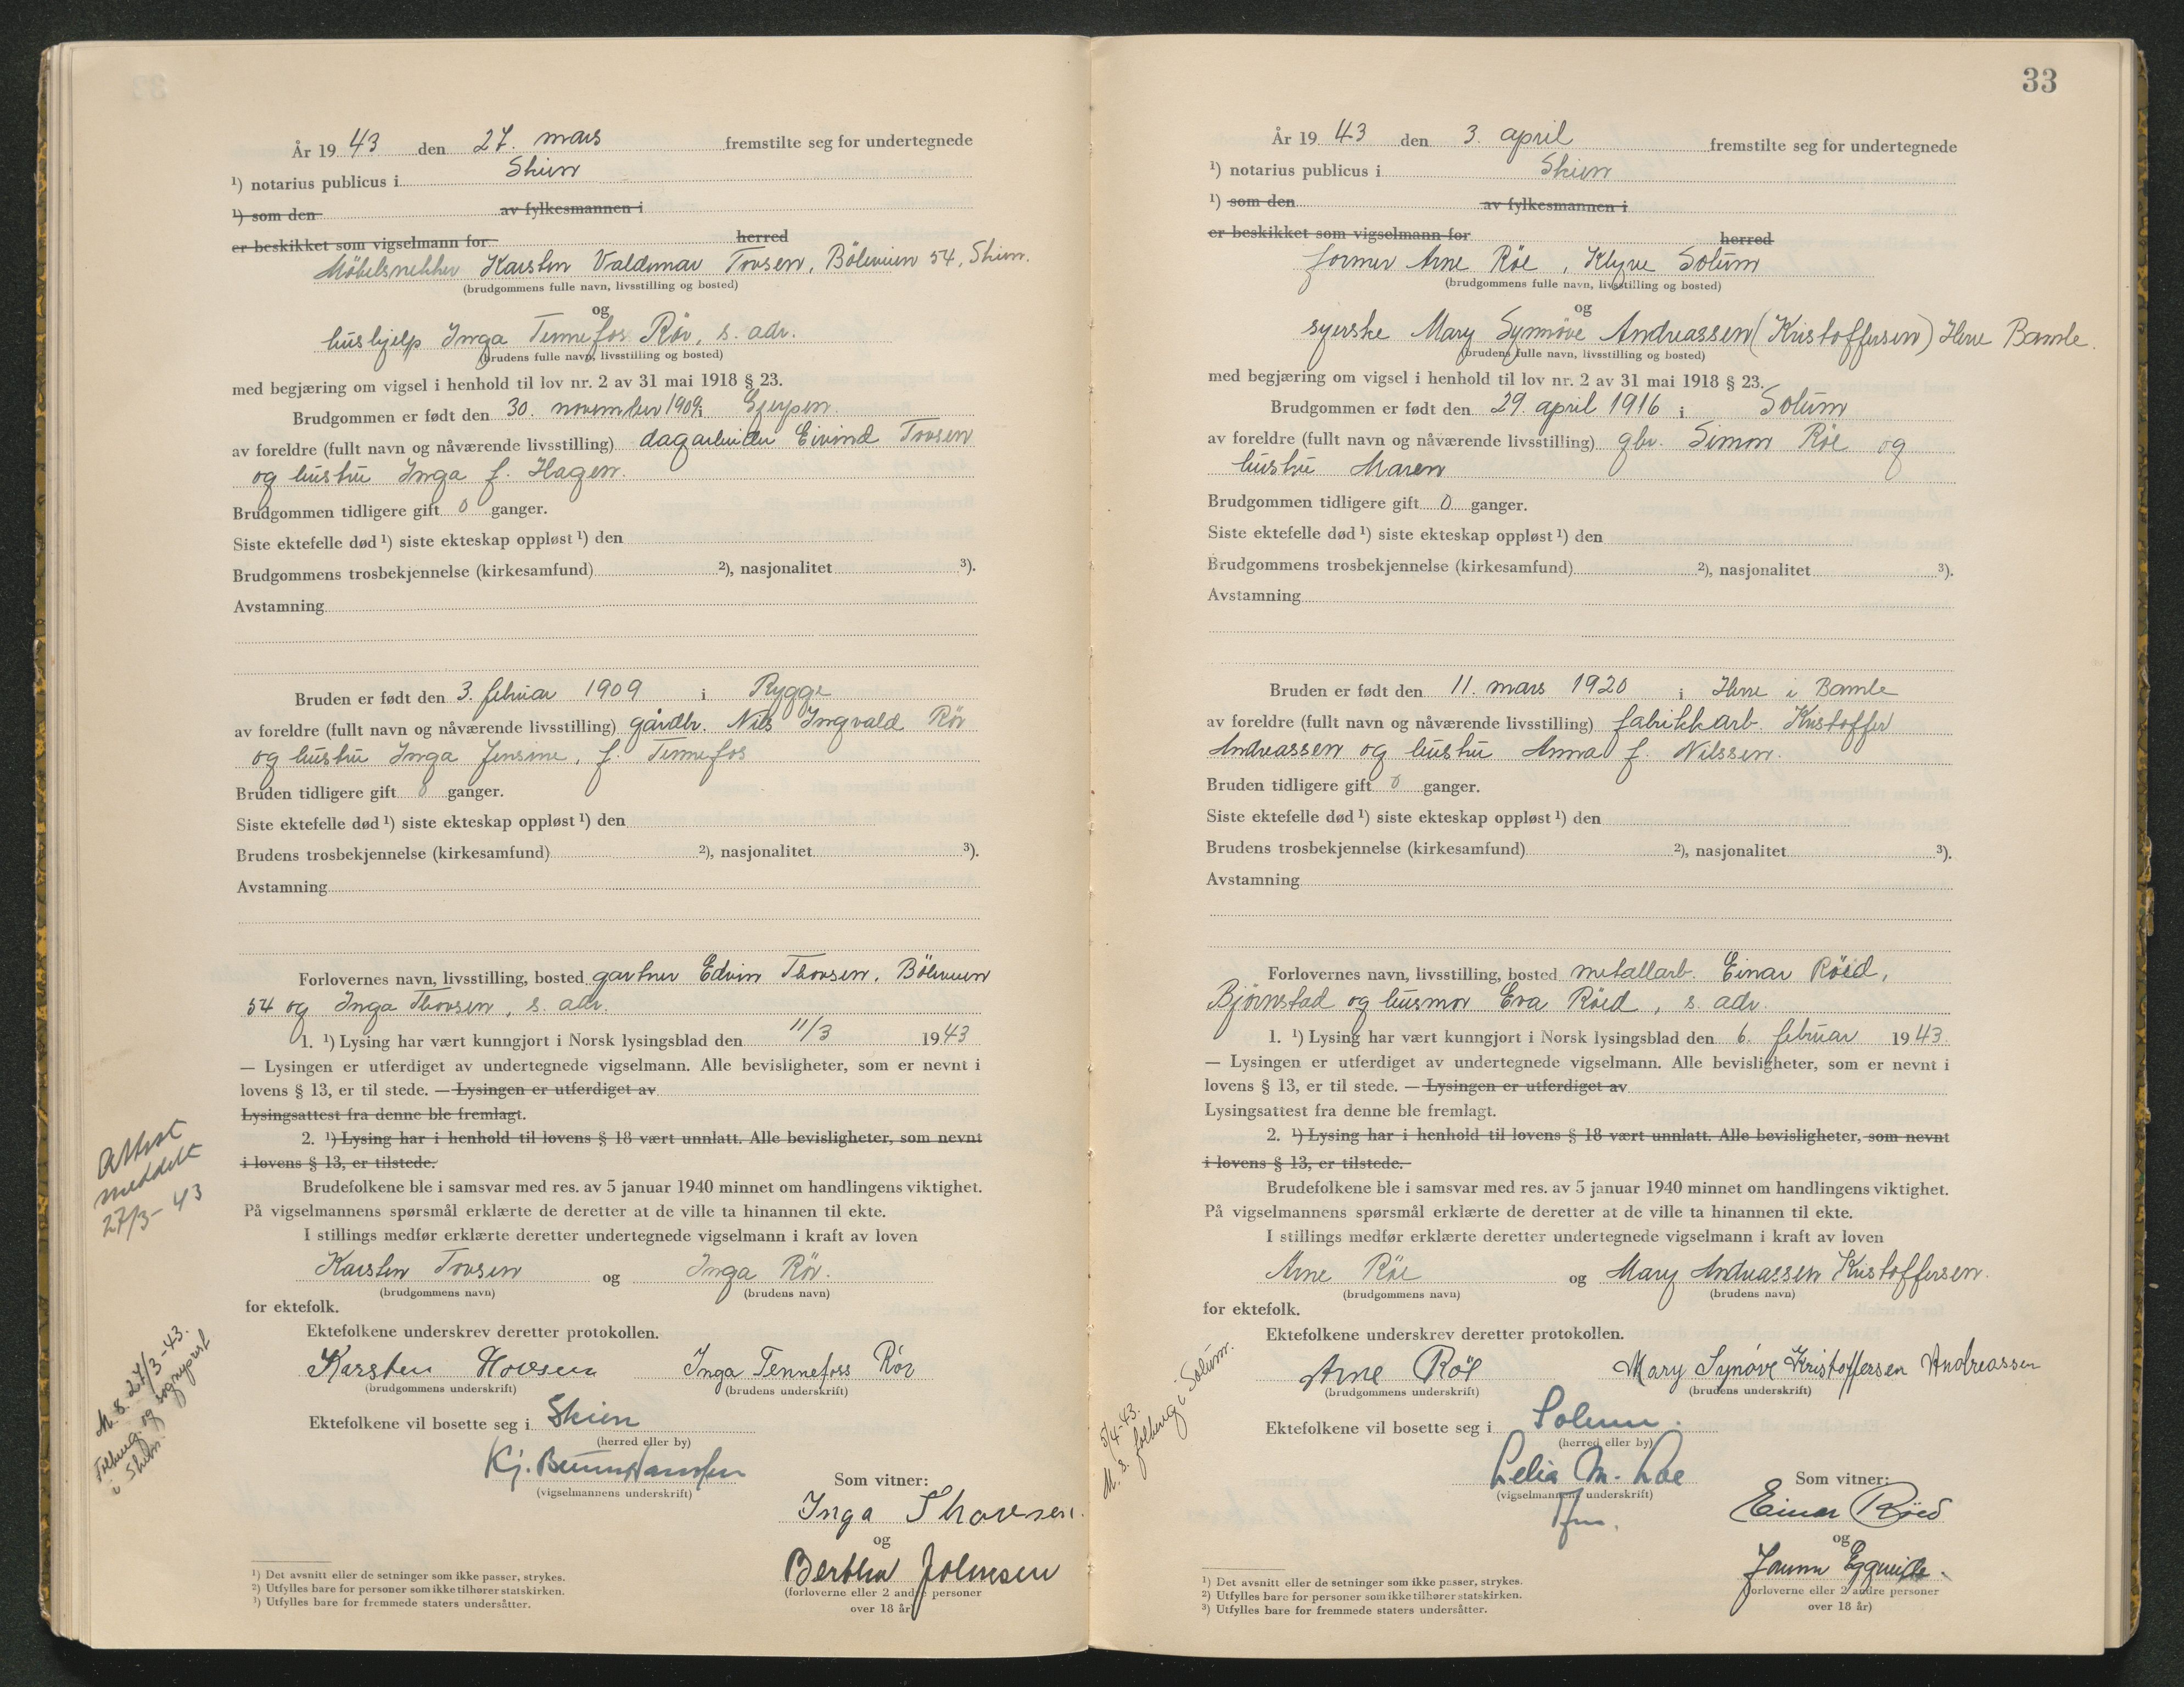 År 19 43 den 27. mars fremstilte seg for undertegnede
¹) notarius publicus i Skien
¹) som den av fylkesmannen i
er beskikket som vigselmann for herred
Möbelsnekker Karsten Valdemar Tovsen, Böleveien 54, Skien.
(brudgommens fulle navn, livsstilling og bosted)
og
hushjelp Inga Tennefos Röv, s. adr.
(brudens fulle navn, livsstilling og bosted)
med begjæring om vigsel i henhold til lov nr. 2 av 31 mai 1918 § 23.
Brudgommen er født den 30. november 1909 i Gjerpen.
av foreldre (fullt navn og nåværende livsstilling) dagarbeider Eivind Tovsen
og hustru Inga f. Hagen.
Brudgommen tidligere gift 0 ganger.
Siste ektefelle død ¹) siste ekteskap oppløst ¹) den
Brudgommens trosbekjennelse (kirkesamfund) ²), nasjonalitet ³).
Avstamning
Bruden er født den 3. februar 1909 i Rygge
av foreldre (fullt navn og nåværende livsstilling) gårdbr. Nils Ingvald Röv
og hustru Inga Jensine, f. Tennefos
Bruden tidligere gift 0 ganger.
Siste ektefelle død ¹) siste ekteskap oppløst ¹) den
Brudens trosbekjennelse (kirkesamfund) ²), nasjonalitet ³).
Avstamning
Forlovernes navn, livsstilling, bosted gartner Edvin Thovsen, Böleveien
54 og Inga Thovsen, s. adr.
1. ¹) Lysing har vært kunngjort i Norsk lysingsblad den 11/3 1943
— Lysingen er utferdiget av undertegnede vigselmann. Alle bevisligheter, som er nevnt i
lovens § 13, er til stede. — Lysingen er utferdiget av
Lysingsattest fra denne ble fremlagt.
2. ¹) Lysing har i henhold til lovens § 18 vært unnlatt. Alle bevisligheter, som nevnt
i lovens § 13, er tilstede.
Brudefolkene ble i samsvar med res. av 5 januar 1940 minnet om handlingens viktighet.
På vigselmannens spørsmål erklærte de deretter at de ville ta hinannen til ekte.
I stillings medfør erklærte deretter undertegnede vigselmann i kraft av loven
Karsten Tovsen og Inga Röv.
(brudgommens navn) (brudens navn)
for ektefolk.
Ektefolkene underskrev deretter protokollen.
Karsten Thovsen Inga Tennefoss Röv
(brudgommens underskrift) (brudens underskrift)
Ektefolkene vil bosette seg i Skien
(herred eller by)
Kj.
(vigselmannens underskrift)
Som vitner:
Inga Thovsen.
og
Bertha Johnsen
(forloverne eller 2 andre personer
over 18 år)
¹) Det avsnitt eller de setninger som ikke passer, strykes.
²) Utfylles bare for personer som ikke tilhører statskirken.
³) Utfylles bare for fremmede staters undersåtter.
Attest
meddelt
27/3-43
M. s. 27/3-43.
Folkereg. og sogneprest
i Skien.
33
År 19 43 den 3. april fremstilte seg for undertegnede
¹) notarius publicus i Skien
¹) som den av fylkesmannen i
er beskikket som vigselmann for herred
former Arne Röe, Klyve Solum
(brudgommens fulle navn, livsstilling og bosted)
og
syerske Mary Synnöve Andreassen (Kristoffersen) Herre Bamle.
(brudens fulle navn, livsstilling og bosted)
med begjæring om vigsel i henhold til lov nr. 2 av 31 mai 1918 § 23.
Brudgommen er født den 29. april 1916 i Solum
av foreldre (fullt navn og nåværende livsstilling) gbr. Simon Röe og
hustru Maren
Brudgommen tidligere gift 0 ganger.
Siste ektefelle død ¹) siste ekteskap oppløst ¹) den
Brudgommens trosbekjennelse (kirkesamfund) ²), nasjonalitet ³).
Avstamning
Bruden er født den 11. mars 1920 i Herre i Bamle
av foreldre (fullt navn og nåværende livsstilling) fabrikkarb. Kristoffer
Andreassen og hustru Anna f. Nilssen.
Bruden tidligere gift 0 ganger.
Siste ektefelle død ¹) siste ekteskap oppløst ¹) den
Brudens trosbekjennelse (kirkesamfund) ²), nasjonalitet ³).
Avstamning
Forlovernes navn, livsstilling, bosted metallarb. Einar Röed,
Bjørnstad og husmor Eva Röed, s. adr.
1. ¹) Lysing har vært kunngjort i Norsk lysingsblad den 6. februar 1943.
— Lysingen er utferdiget av undertegnede vigselmann. Alle bevisligheter, som er nevnt i
lovens § 13, er til stede. — Lysingen er utferdiget av
Lysingsattest fra denne ble fremlagt.
2. ¹) Lysing har i henhold til lovens § 18 vært unnlatt. Alle bevisligheter, som nevnt
i lovens § 13, er tilstede.
Brudefolkene ble i samsvar med res. av 5 januar 1940 minnet om handlingens viktighet.
På vigselmannens spørsmål erklærte de deretter at de ville ta hinannen til ekte.
I stillings medfør erklærte deretter undertegnede vigselmann i kraft av loven
Arne Röe og Mary Andreassen Kristoffersen.
(brudgommens navn) (brudens navn)
for ektefolk.
Ektefolkene underskrev deretter protokollen.
Arne Röe Mary Synøve Kristoffersen Andreassen
(brudgommens underskrift) (brudens underskrift)
Ektefolkene vil bosette seg i Solum.
(herred eller by)
Lelia M. Loe
(vigselmannens underskrift)
Som vitner:
Einar Röed
og
(forloverne eller 2 andre personer
over 18 år)
¹) Det avsnitt eller de setninger som ikke passer, strykes.
²) Utfylles bare for personer som ikke tilhører statskirken.
³) Utfylles bare for fremmede staters undersåtter.
5/4-43.
M. s. folkereg i Solum.